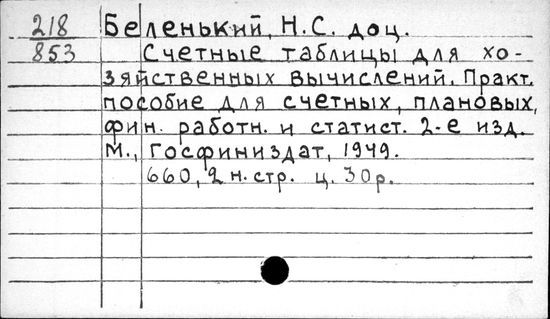 218 Беленький, Н.С. доц.
853 Счетные таблицы для хо-
зяйственных вычислений. Практ.
пособие для счетных, плановых,
фин. работн. и статист. 2-е изд.
М., Госфиниздат, 1949.
660, 2 н. стр. ц. 30 р.